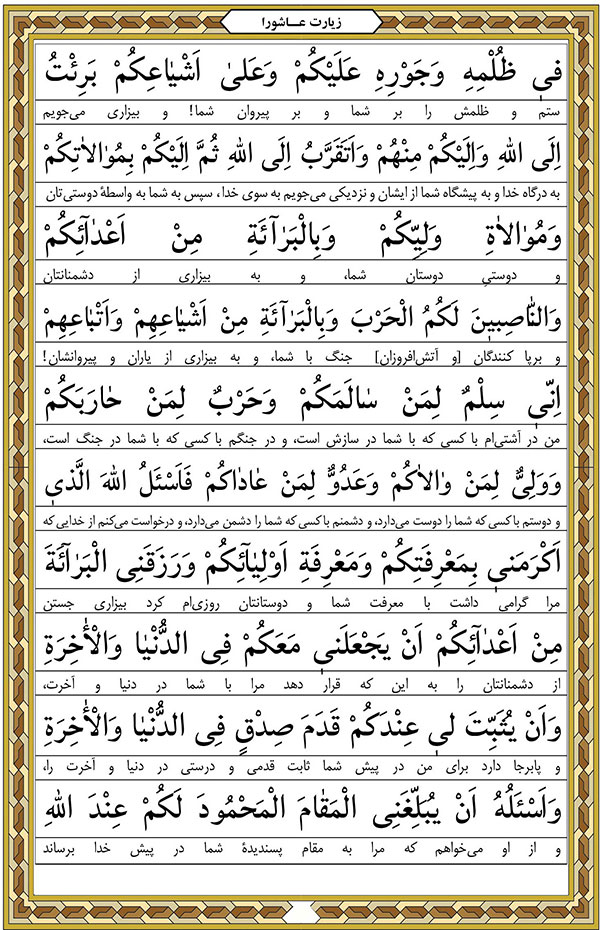 زیارت عـــاشورا
فی ظُلْمِهِ وَجَوْرِهِ عَلَیْکُمْ وَعَلیٰ اَشْیٰاعِکُمْ بَرِئْتُ
ستم و ظلمش را بر شما و بر پیروان شما! و بیزاری می‌جویم
اِلَی اللهِ وَاِلَیْکُمْ مِنْهُمْ وَاَتَقَرَّبُ اِلَی اللهِ ثُمَّ اِلَیْکُمْ بِمُوٰالاٰتِکُمْ
به درگاه خدا و به پیشگاه شما از ایشان و نزدیکی می‌جویم به سوی خدا، سپس به شما به واسطهٔ دوستی‌تان
وَمُوٰالاٰةِ وَلِیِّکُمْ وَبِالْبَرٰآئَةِ مِنْ اَعْدٰآئِکُمْ
و دوستیِ دوستان شما، و به بیزاری از دشمنانتان
وَالنّٰاصِبینَ لَکُمُ الْحَرْبَ وَبِالْبَرٰآئَةِ مِنْ اَشْیٰاعِهِمْ وَاَتْبٰاعِهِمْ
و برپا کنندگان [و آتش‌افروزان] جنگ با شما، و به بیزاری از یاران و پیروانشان!
اِنّی سِلْمٌ لِمَنْ سٰالَمَکُمْ وَحَرْبٌ لِمَنْ حٰارَبَکُمْ
من در آشتی‌ام با کسی که با شما در سازش است، و در جنگم با کسی که با شما در جنگ است،
وَوَلِیٌّ لِمَنْ وٰالاٰکُمْ وَعَدُوٌّ لِمَنْ عٰادٰاکُمْ فَاَسْئَلُ اللهَ الَّذی
و دوستم با کسی که شما را دوست می‌دارد، و دشمنم با کسی که شما را دشمن می‌دارد، و درخواست می‌کنم از خدایی که
اَکْرَمَنی بِمَعْرِفَتِکُمْ وَمَعْرِفَةِ اَوْلِیٰآئِکُمْ وَرَزَقَنِی الْبَرٰآئَةَ
مرا گرامی داشت با معرفت شما و دوستانتان روزی‌ام کرد بیزاری جستن
مِنْ اَعْدٰآئِکُمْ اَنْ یَجْعَلَنی مَعَکُمْ فِی الدُّنْیٰا وَالْأٰخِرَةِ
از دشمنانتان را به این که قرار دهد مرا با شما در دنیا و آخرت،
وَاَنْ یُثَبِّتَ لی عِنْدَکُمْ قَدَمَ صِدْقٍ فِی الدُّنْیٰا وَالْأٰخِرَةِ
و پابرجا دارد برای من در پیش شما ثابت قدمی و درستی در دنیا و آخرت را،
وَاَسْئَلُهُ اَنْ یُبَلِّغَنِی الْمَقٰامَ الْمَحْمُودَ لَکُمْ عِنْدَ اللهِ
و از او می‌خواهم که مرا به مقام پسندیدهٔ شما در پیش خدا برساند